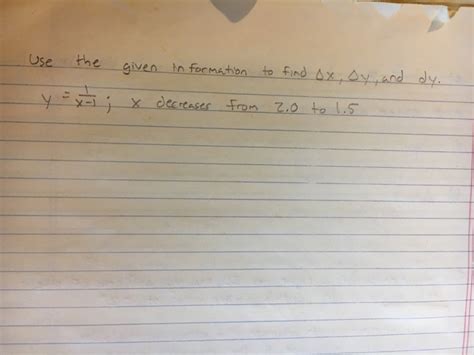 Use the given information to find Δx, Δy, and dy.
y = 1/(x-1); x decreases from 2.0 to 1.5